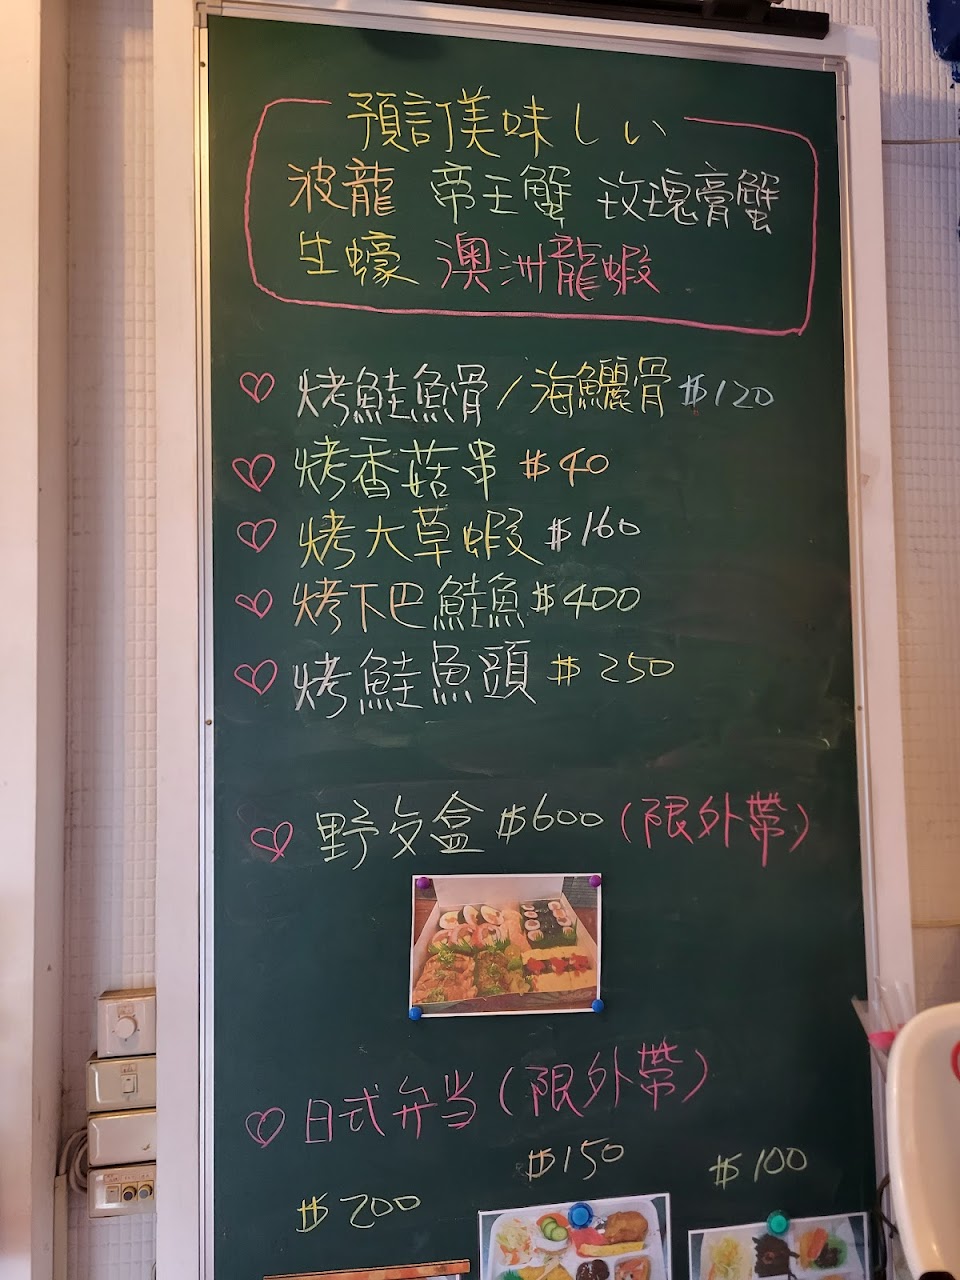 預訂美味しい
波龍 帝王蟹 玫瑰膏蟹
生蠔 澳洲龍蝦
♡ 烤鮭魚骨/海鱺骨 $120
♡ 烤香菇串 $40
♡ 烤大草蝦 $160
♡ 烤下巴鮭魚 $400
♡ 烤鮭魚頭 $250
♡ 野夕盒 $600 (限外帶)
♡ 日式弁当 (限外帶)
$200 $150 $100